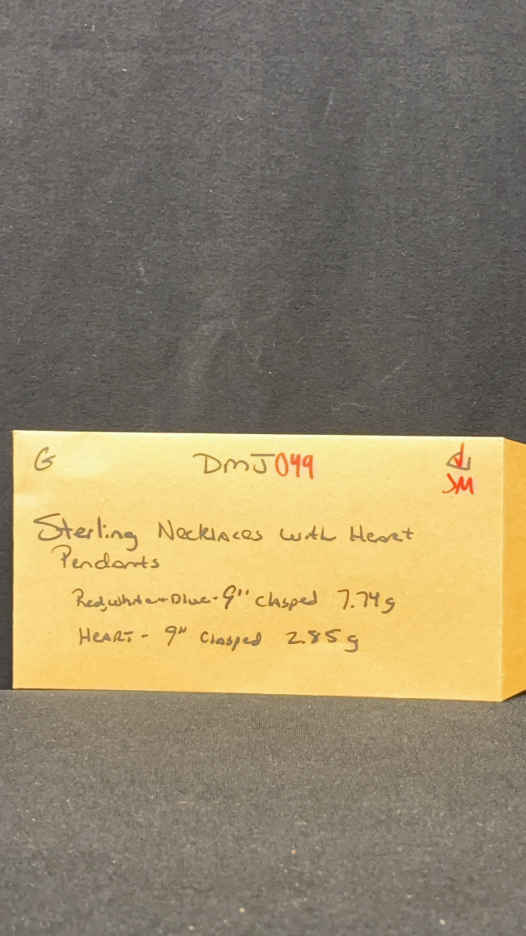 G DMJ049
JM
Sterling Necklaces with Heart
Pendants
Red, white + Blue - 9" clasped 7.74g
HEART - 9" Clasped 2.85g